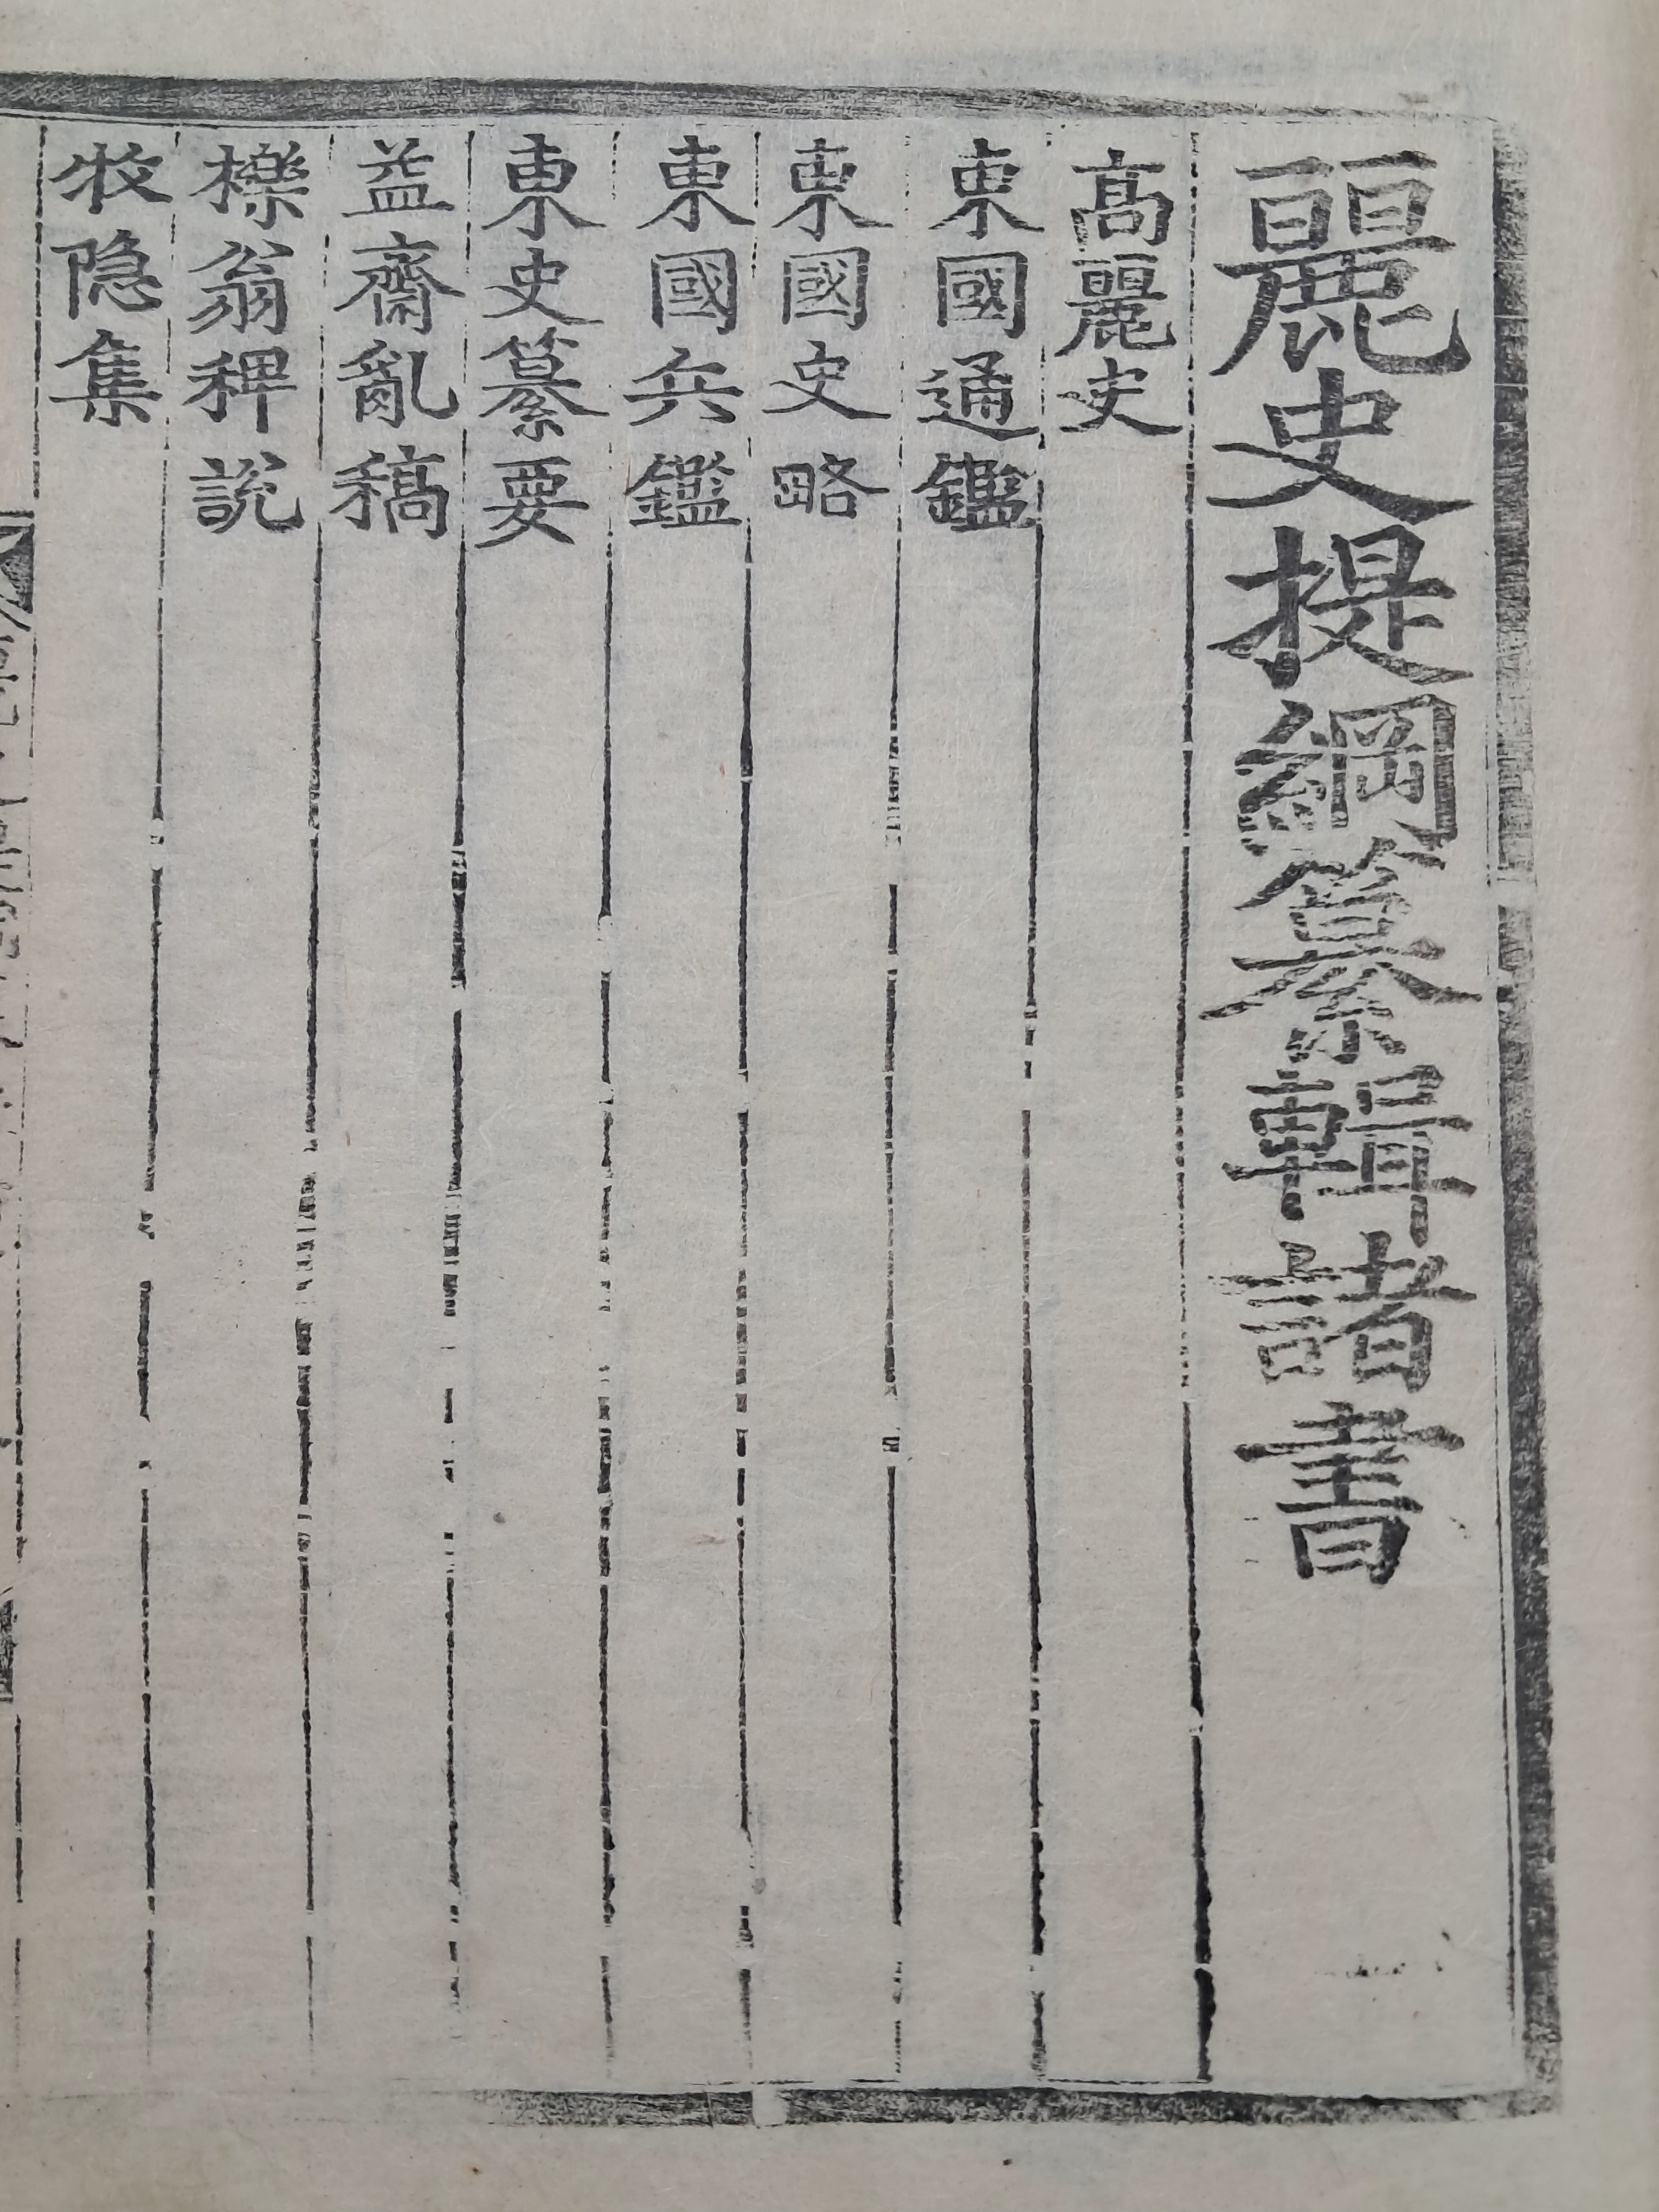 麗史提綱纂輯諸書
高麗史
東國通鑑
東國史略
東國兵鑑
東史纂要
益齋亂稿
櫟翁稗說
牧隐集